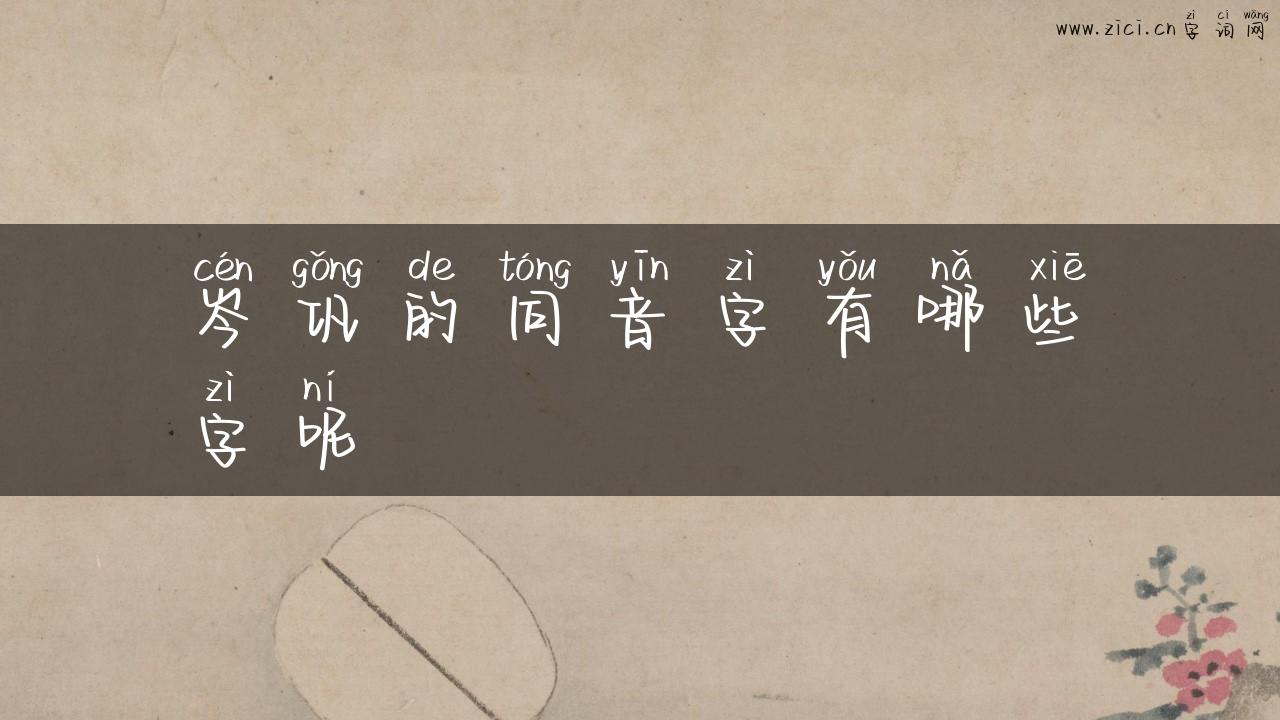 zì cí wǎng
www.zici.cn 字词网
cén gǒng de tóng yīn zì yǒu nǎ xiē
岑巩的同音字有哪些
zì ní
字呢